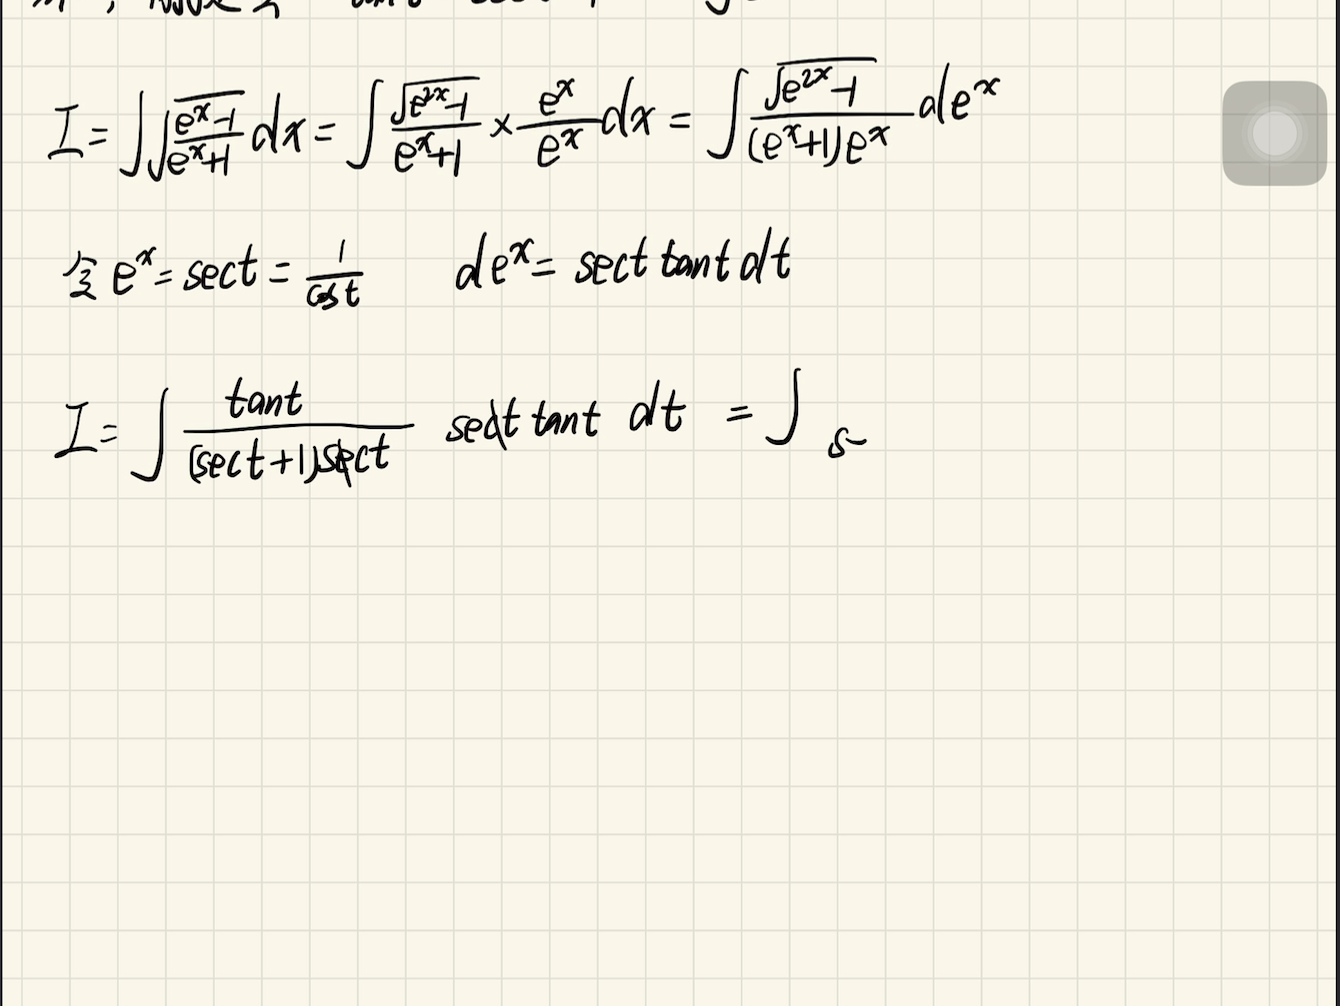 I = ∫√((eˣ-1)/(eˣ+1)) dx = ∫ √(e²ˣ-1)/(eˣ+1) × eˣ/eˣ dx = ∫ √(e²ˣ-1)/((eˣ+1)eˣ) deˣ
令 eˣ = sect = 1/cost deˣ = sect tant dt
I = ∫ tant/((sect+1)sect) sect tant dt = ∫